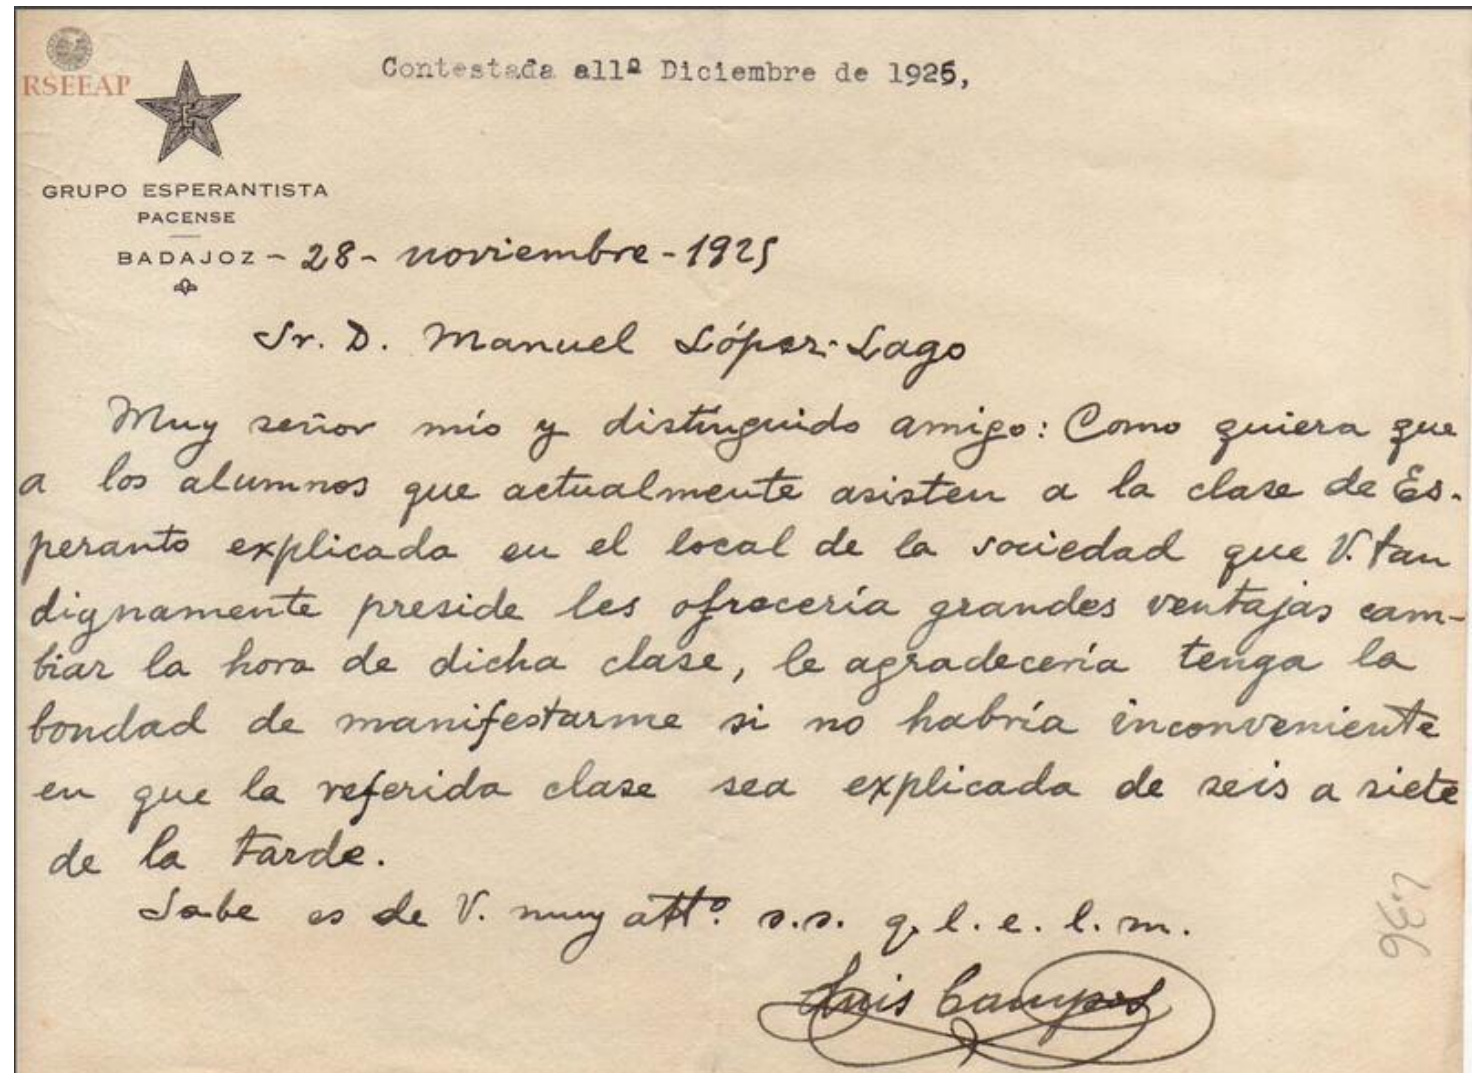 RSEEAP
Contestada all º Diciembre de 1925,
GRUPO ESPERANTISTA
PACENSE
BADAJOZ - 28 - noviembre - 1925
Sr. D. Manuel López-Lago
Muy señor mío y distinguido amigo: Como quiera que
a los alumnos que actualmente asisten a la clase de Es-
peranto explicada en el local de la sociedad que V. tan
dignamente preside les ofrecería grandes ventajas cam-
biar la hora de dicha clase, le agradecería tenga la
bondad de manifestarme si no habría inconveniente
en que la referida clase sea explicada de seis a siete
de la tarde.
Sabe es de V. muy attº. s.s. q. l. e. l. m.
Luis Campos